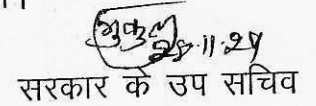 मुकुल
28.11.24
सरकार के उप सचिव